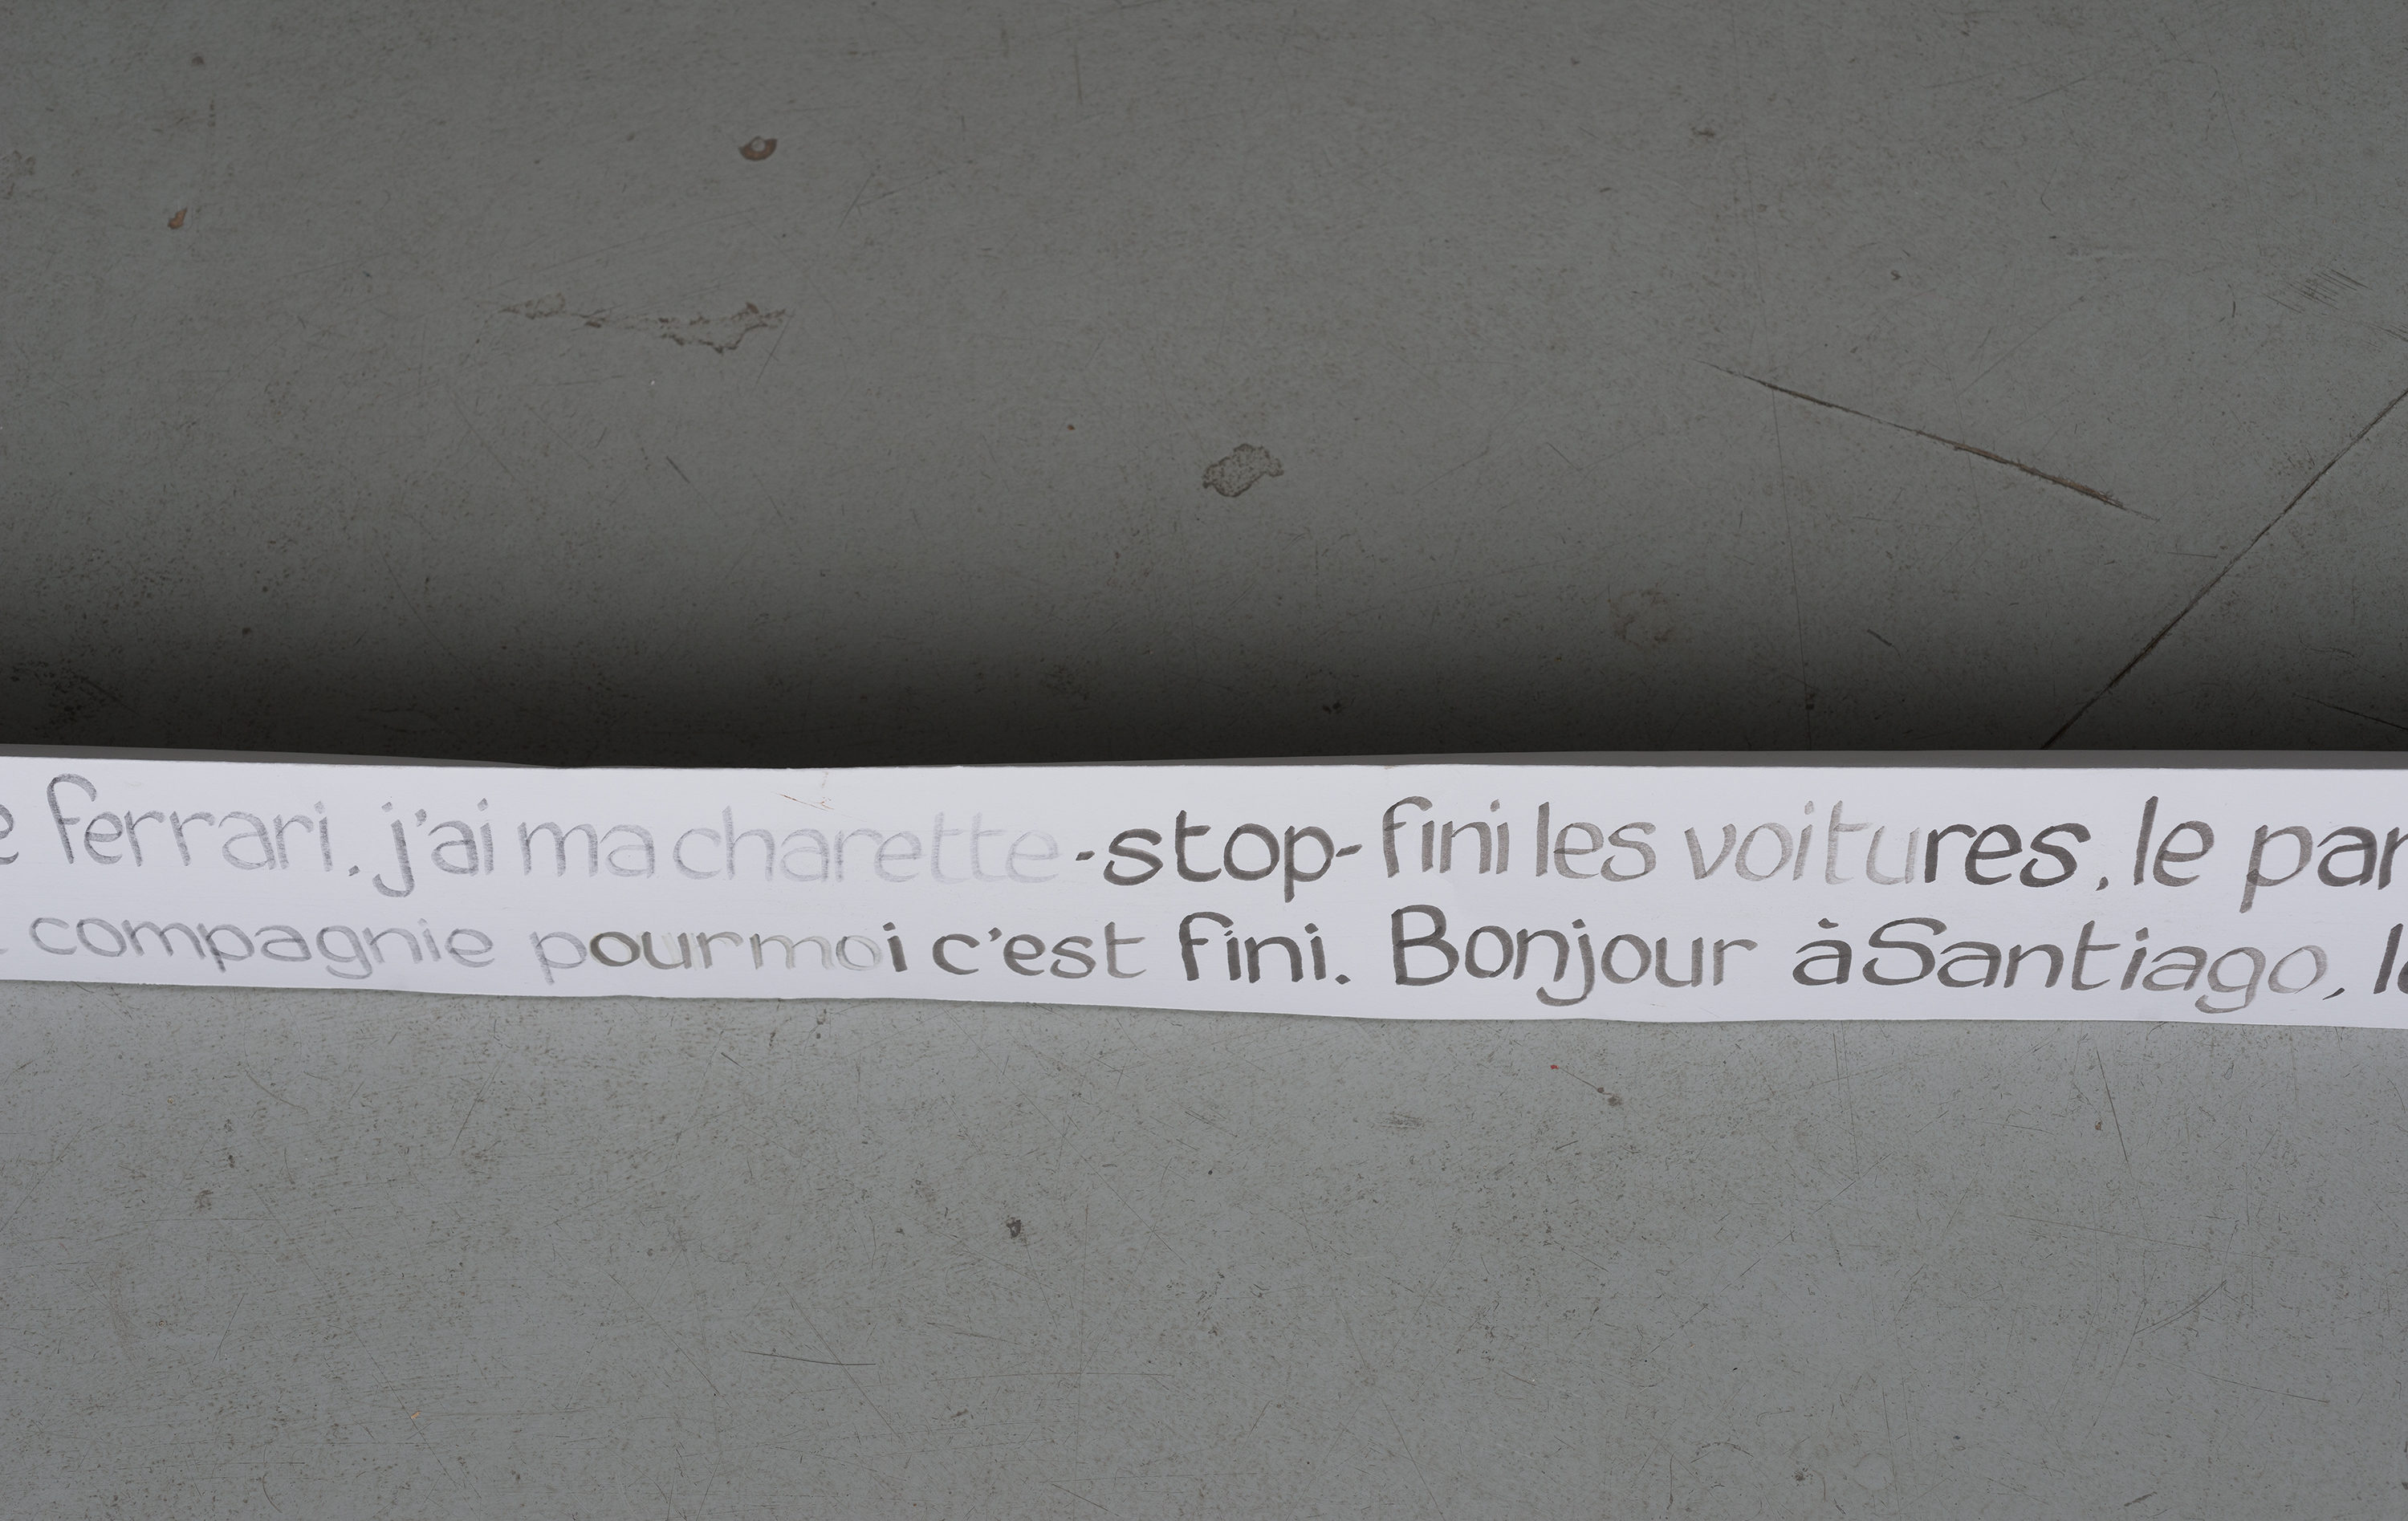 e ferrari. j'ai ma charette -stop- fini les voitures, le par
compagnie pour moi c'est fini. Bonjour à Santiago, l